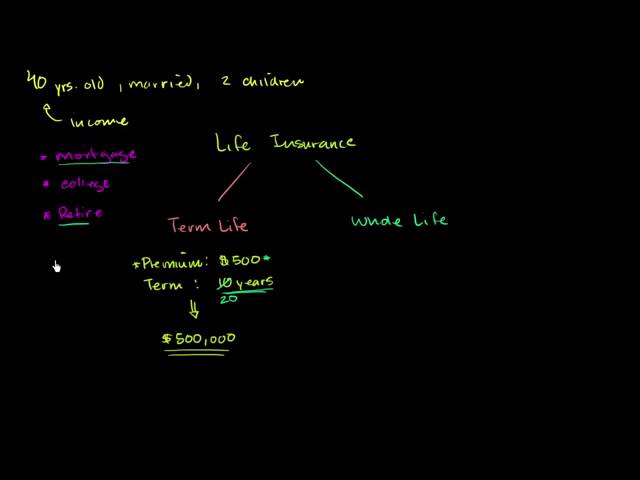 40 yrs. old, married, 2 children
Income
* mortgage
* college
* Retire
Life Insurance
Term Life
Whole Life
* Premium: $500 *
Term : 10 years
20
$500,000